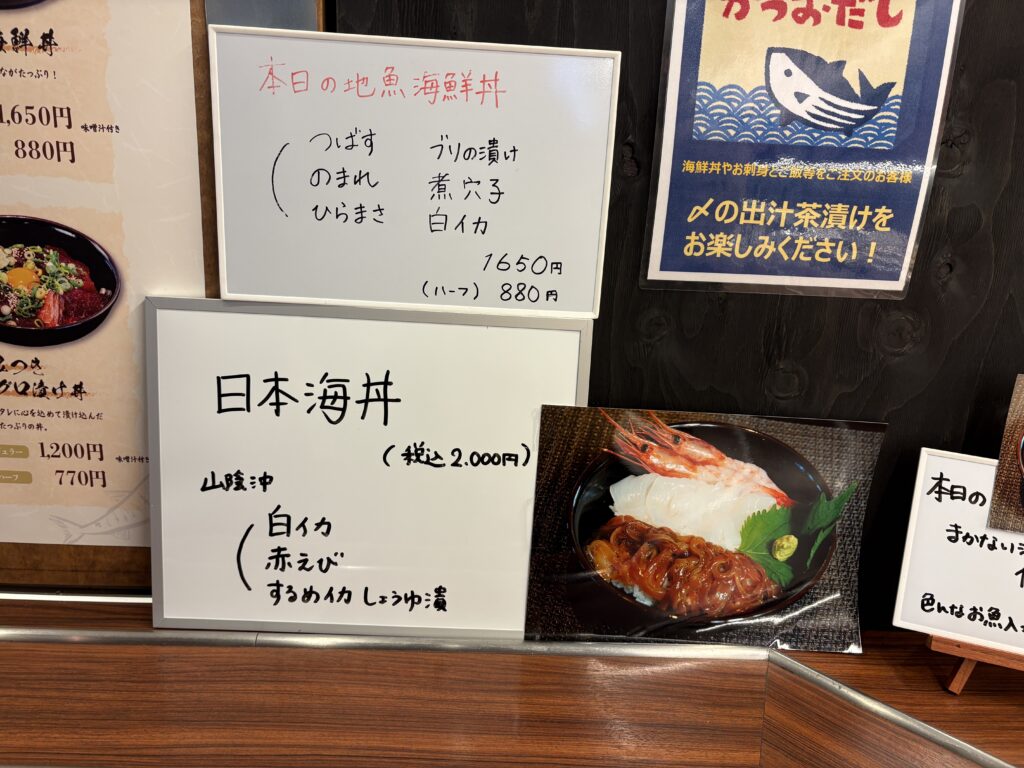 海鮮丼
ながたっぷり！
1,650円 味噌汁付き
880円
グロ漬け丼
タレに心を込めて漬け込んだ
たっぷりの丼。
1,200円 味噌汁付き
ハーフ 770円
本日の地魚海鮮丼
つばす ブリの漬け
のまれ 煮穴子
ひらまさ 白イカ
1650円
(ハーフ) 880円
日本海丼
(税込2.000円)
山陰沖
白イカ
赤えび
するめイカしょうゆ漬
かつおだし
海鮮丼やお刺身とご飯等をご注文のお客様
〆の出汁茶漬けを
お楽しみください！
本日の
まかない
色んなお魚入